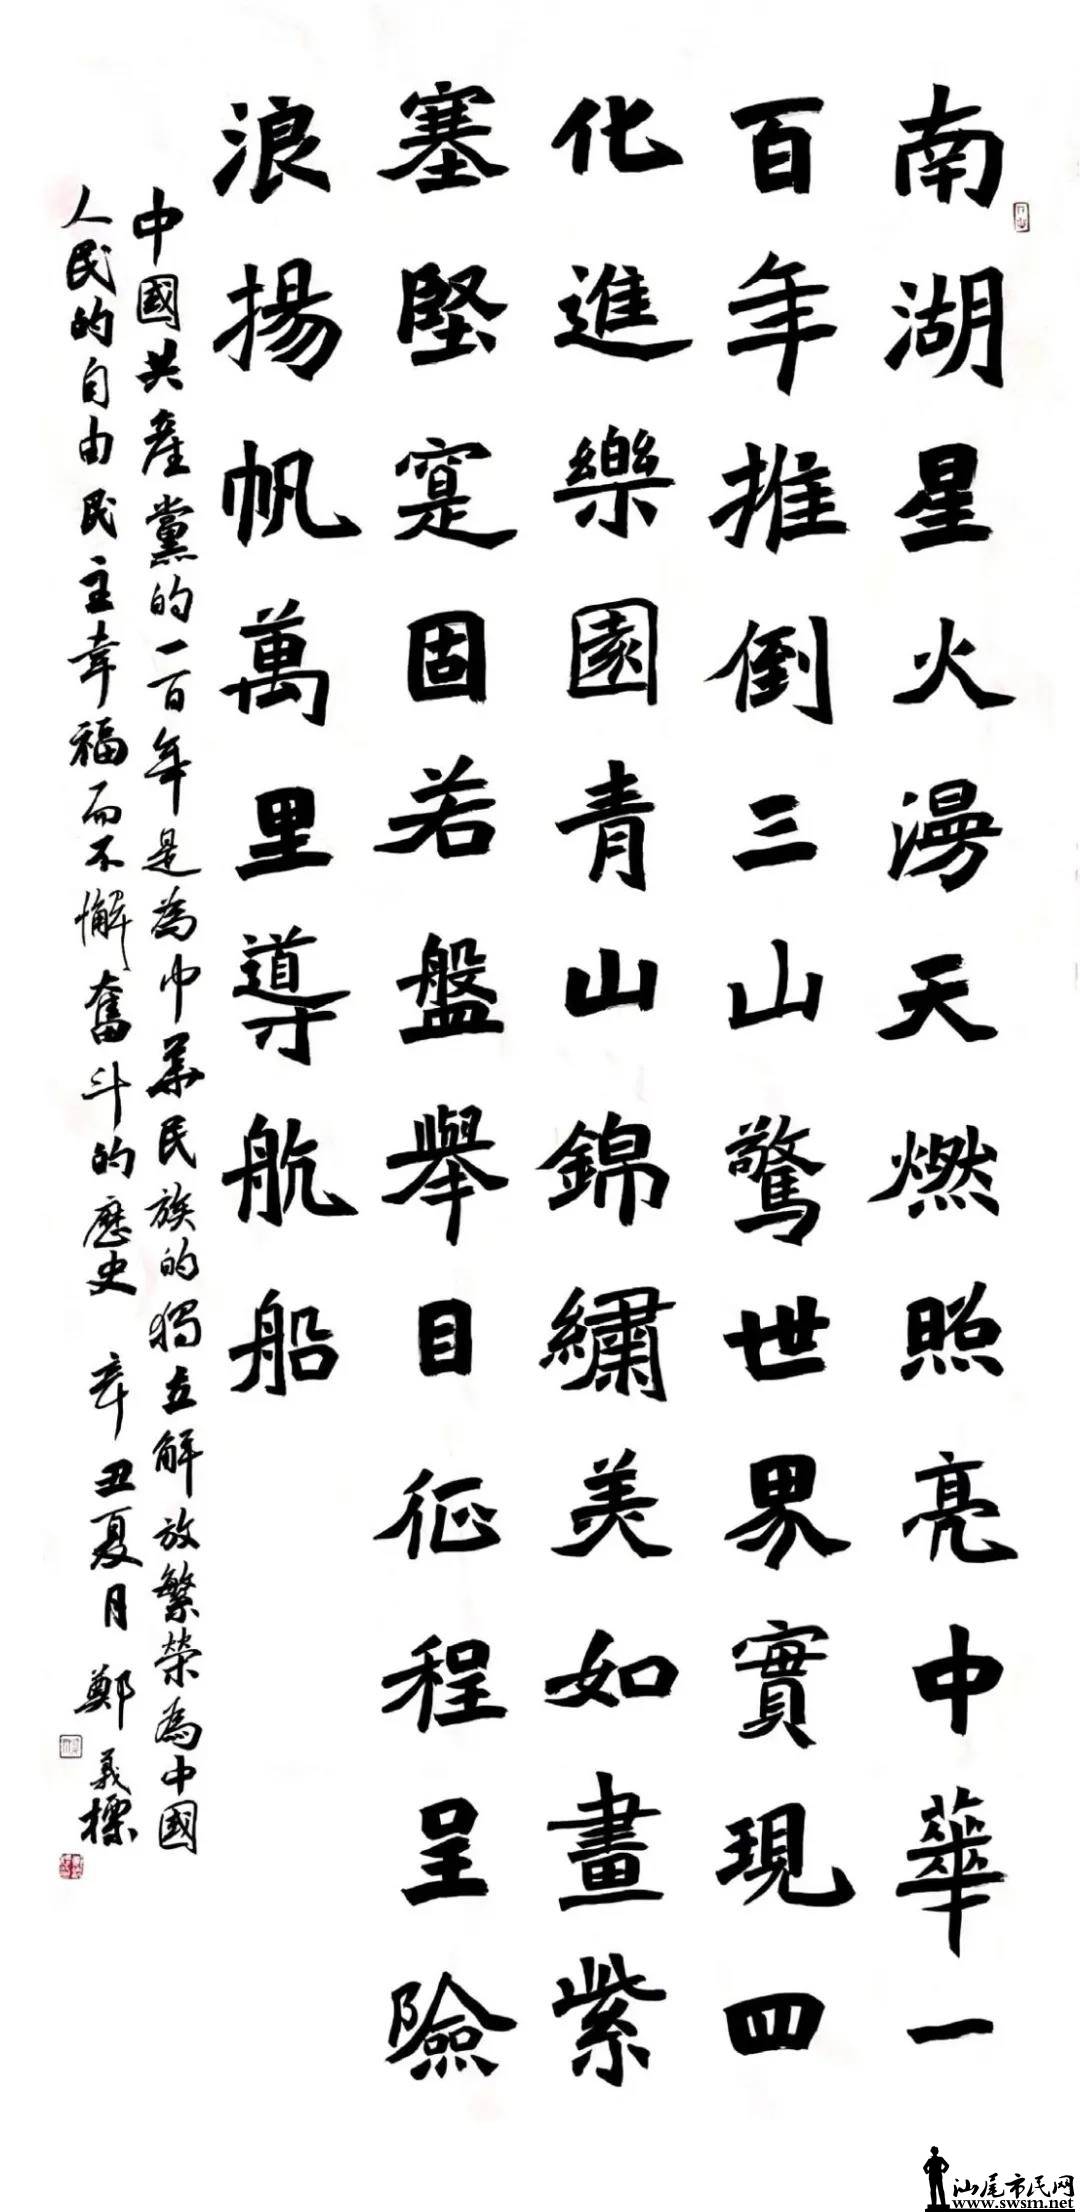 南湖星火漫天燃照亮中華一
百年推倒三山驚世界實現四
化進樂園青山錦繡美如畫紫
塞堅寔固若盤舉目征程呈險
浪揚帆萬里導航船
中國共產黨的一百年是為中華民族的獨立解放繁榮為中國
人民的自由民主幸福而不懈奮斗的歷史 辛丑夏月 鄭義標
汕尾市民网
www.swsm.net